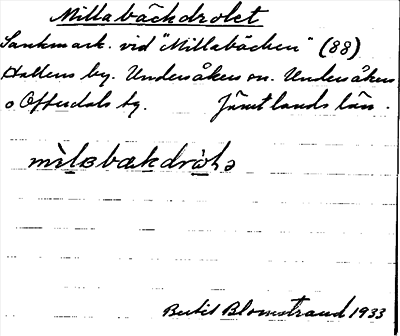 Millabäckdrolet
Sankmark. vid "Millabäcken" (88)
Hallens by. Undersåkers sn. Undersåkers
o Offerdals tg. Jämtlands län.
mìlɐbækdròlə
Bertil Blomstrand 1933